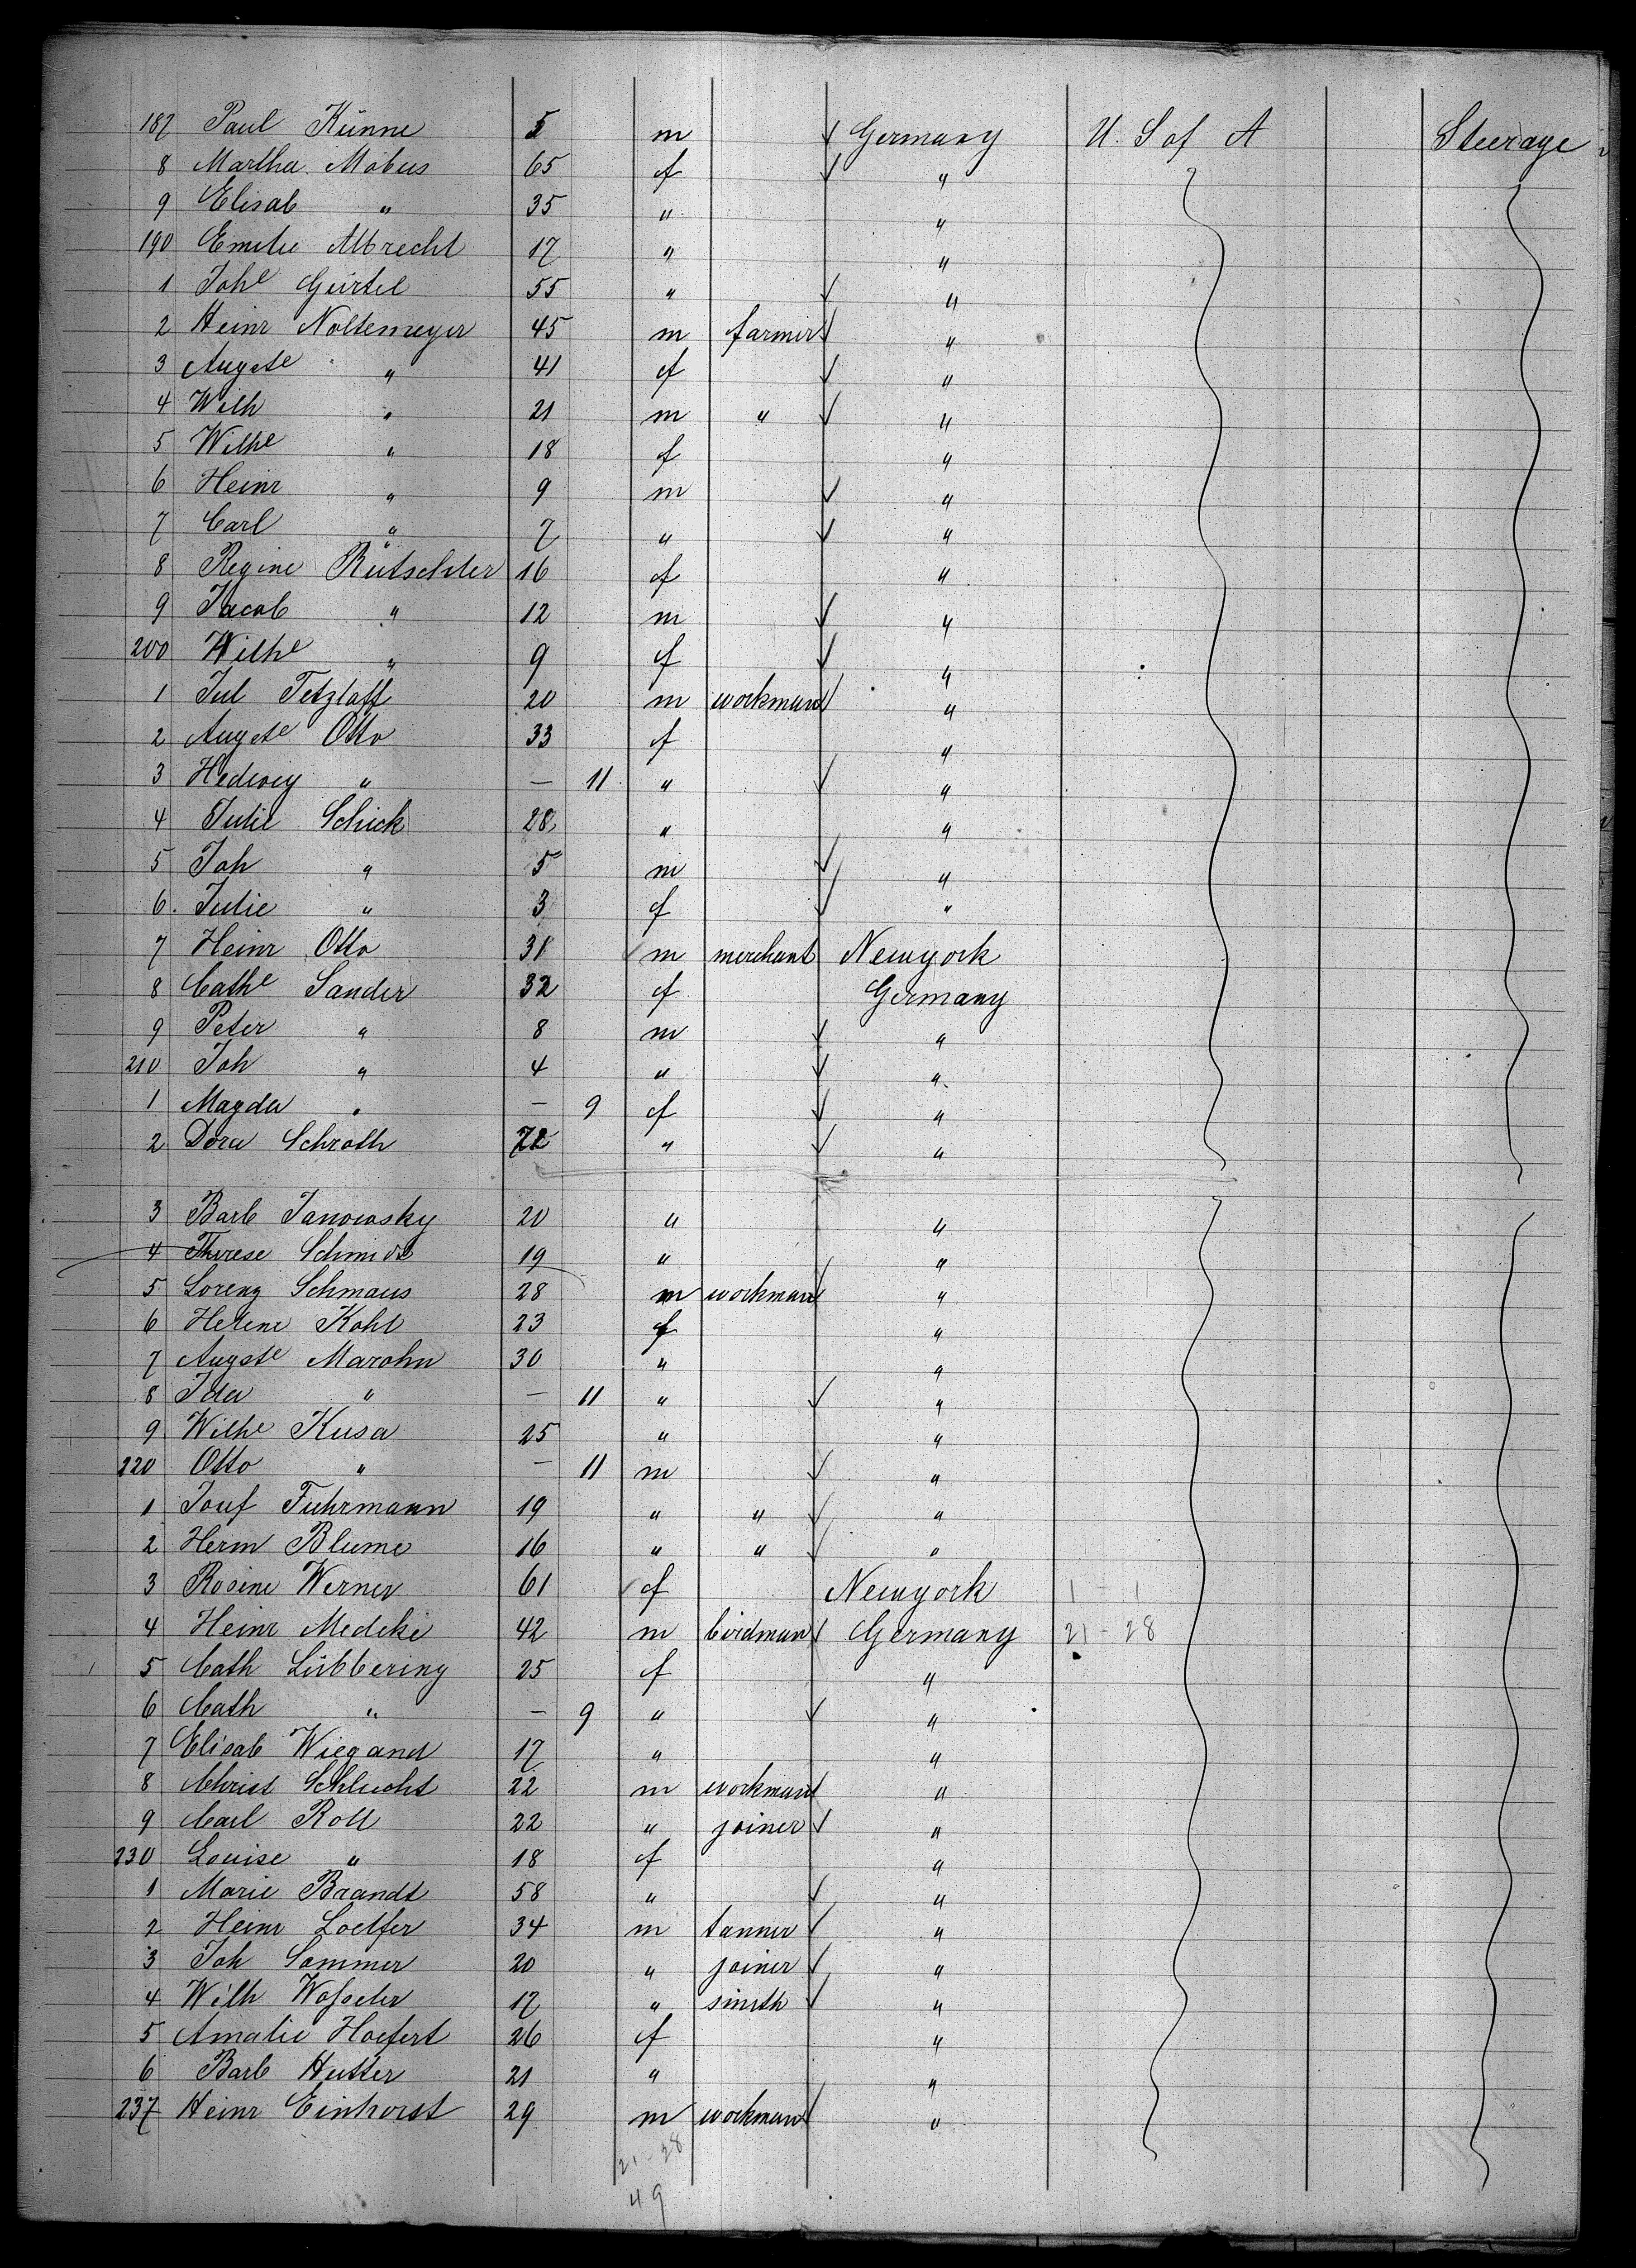 187 Paul Künne 5 m Germany U. S of A Steerage
8 Martha Möbus 65 f "  "
9 Elisab " 35 " "
190 Emilie Albrecht 17 " "
1 Joh^e Gürtel 55 " "
2 Heinr Noltemeyer 45 m farmer "
3 Augste " 41 f "
4 Wilh " 21 m " "
5 Wilhe " 18 f "
6 Heinr " 9 m "
7 Carl " 7 " "
8 Regine Rütschler 16 f "
9 Jacob " 12 m "
200 Wilhe " 9 f "
1 Jul Tetzlaff 20 m workman "
2 Augste Otto 33 f "
3 Hedwig " — 11 " "
4 Julie Schick 28 " "
5 Joh " 5 m "
6 Julie " 3 f "
7 Heinr Otto 31 m merchant Newyork
8 Cathe Sander 32 f Germany
9 Peter " 8 m "
210 Joh " 4 " "
1 Magda " — 9 f "
2 Dora Schroth 72 " "
3 Barb Janowsky 20 " "
4 Therese Schmidt 19 " "
5 Lorenz Schmaus 28 m workman "
6 Helene Kohl 23 f "
7 Augste Marohn 30 " "
8 Ida " — 11 " "
9 Wilhe Kusa 25 " "
220 Otto " — 11 m "
1 Josef Fuhrmann 19 " " "
2 Herm Blume 16 " " "
3 Rosine Werner 61 f Newyork 1 - 1
4 Heinr Medeke 42 m birdman Germany 21 - 28
5 Cath Lübbering 25 f "
6 Cath " — 9 " "
7 Elisab Wiegand 17 " "
8 Christ Schlucht 22 m workman "
9 Carl Roll 22 " joiner "
230 Louise " 18 f "
1 Marie Brandt 58 " "
2 Heinr Loelfer 34 m tanner "
3 Joh Sommer 20 " joiner "
4 Wilh 17 " smith "
5 Amalie Hoefert 26 f "
6 Barb Hutter 21 " "
237 Heinr Einhorst 29 m workman "
21 - 28
49